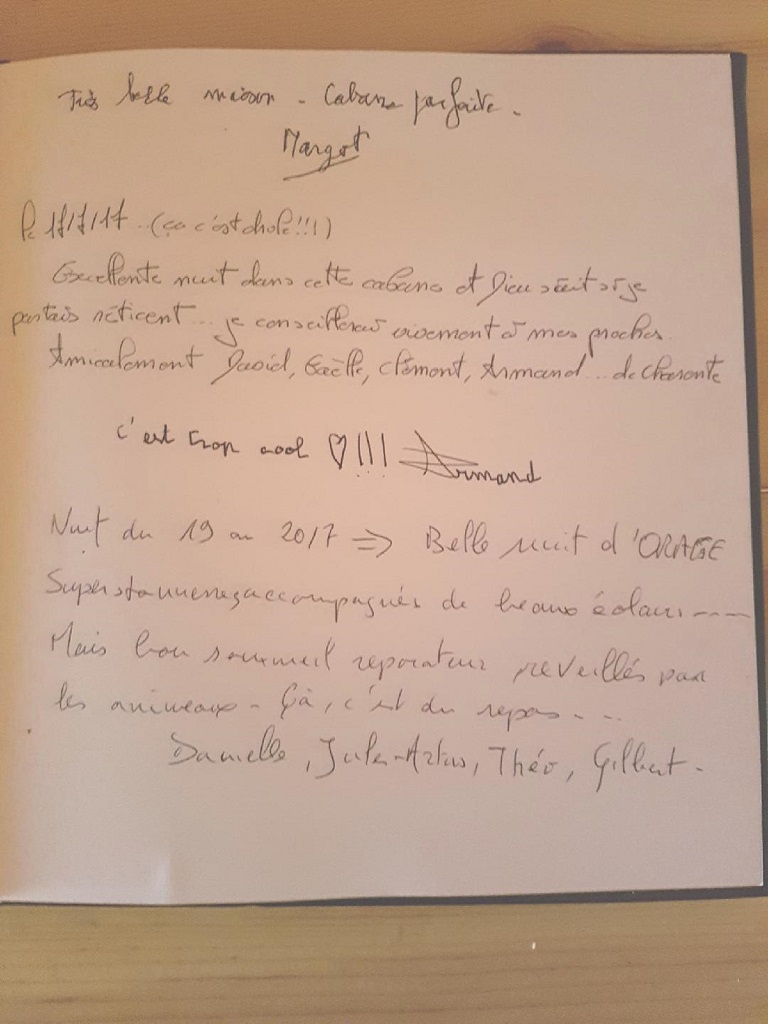 Très belle maison - Cabane parfaite.
Margot
Le 17/7/17. (ça c'est drole!!!)
Excellente nuit dans cette cabane et Dieu sait si je
partais réticent... je conseillerai vivement à mes proches
Amicalement David, Gaëlle, Clément, Armand... de Charente
c'est trop cool ♡!!! Armand
Nuit du 19 au 20/7 => Belle nuit d'ORAGE
Supers tonnerres accompagnés de beaux éclairs ----
Mais bon sommeil réparateur réveillés par
les animeaux - Çà, c'est du repos...
Danielle, Jules-Artus, Théo, Gilbert -